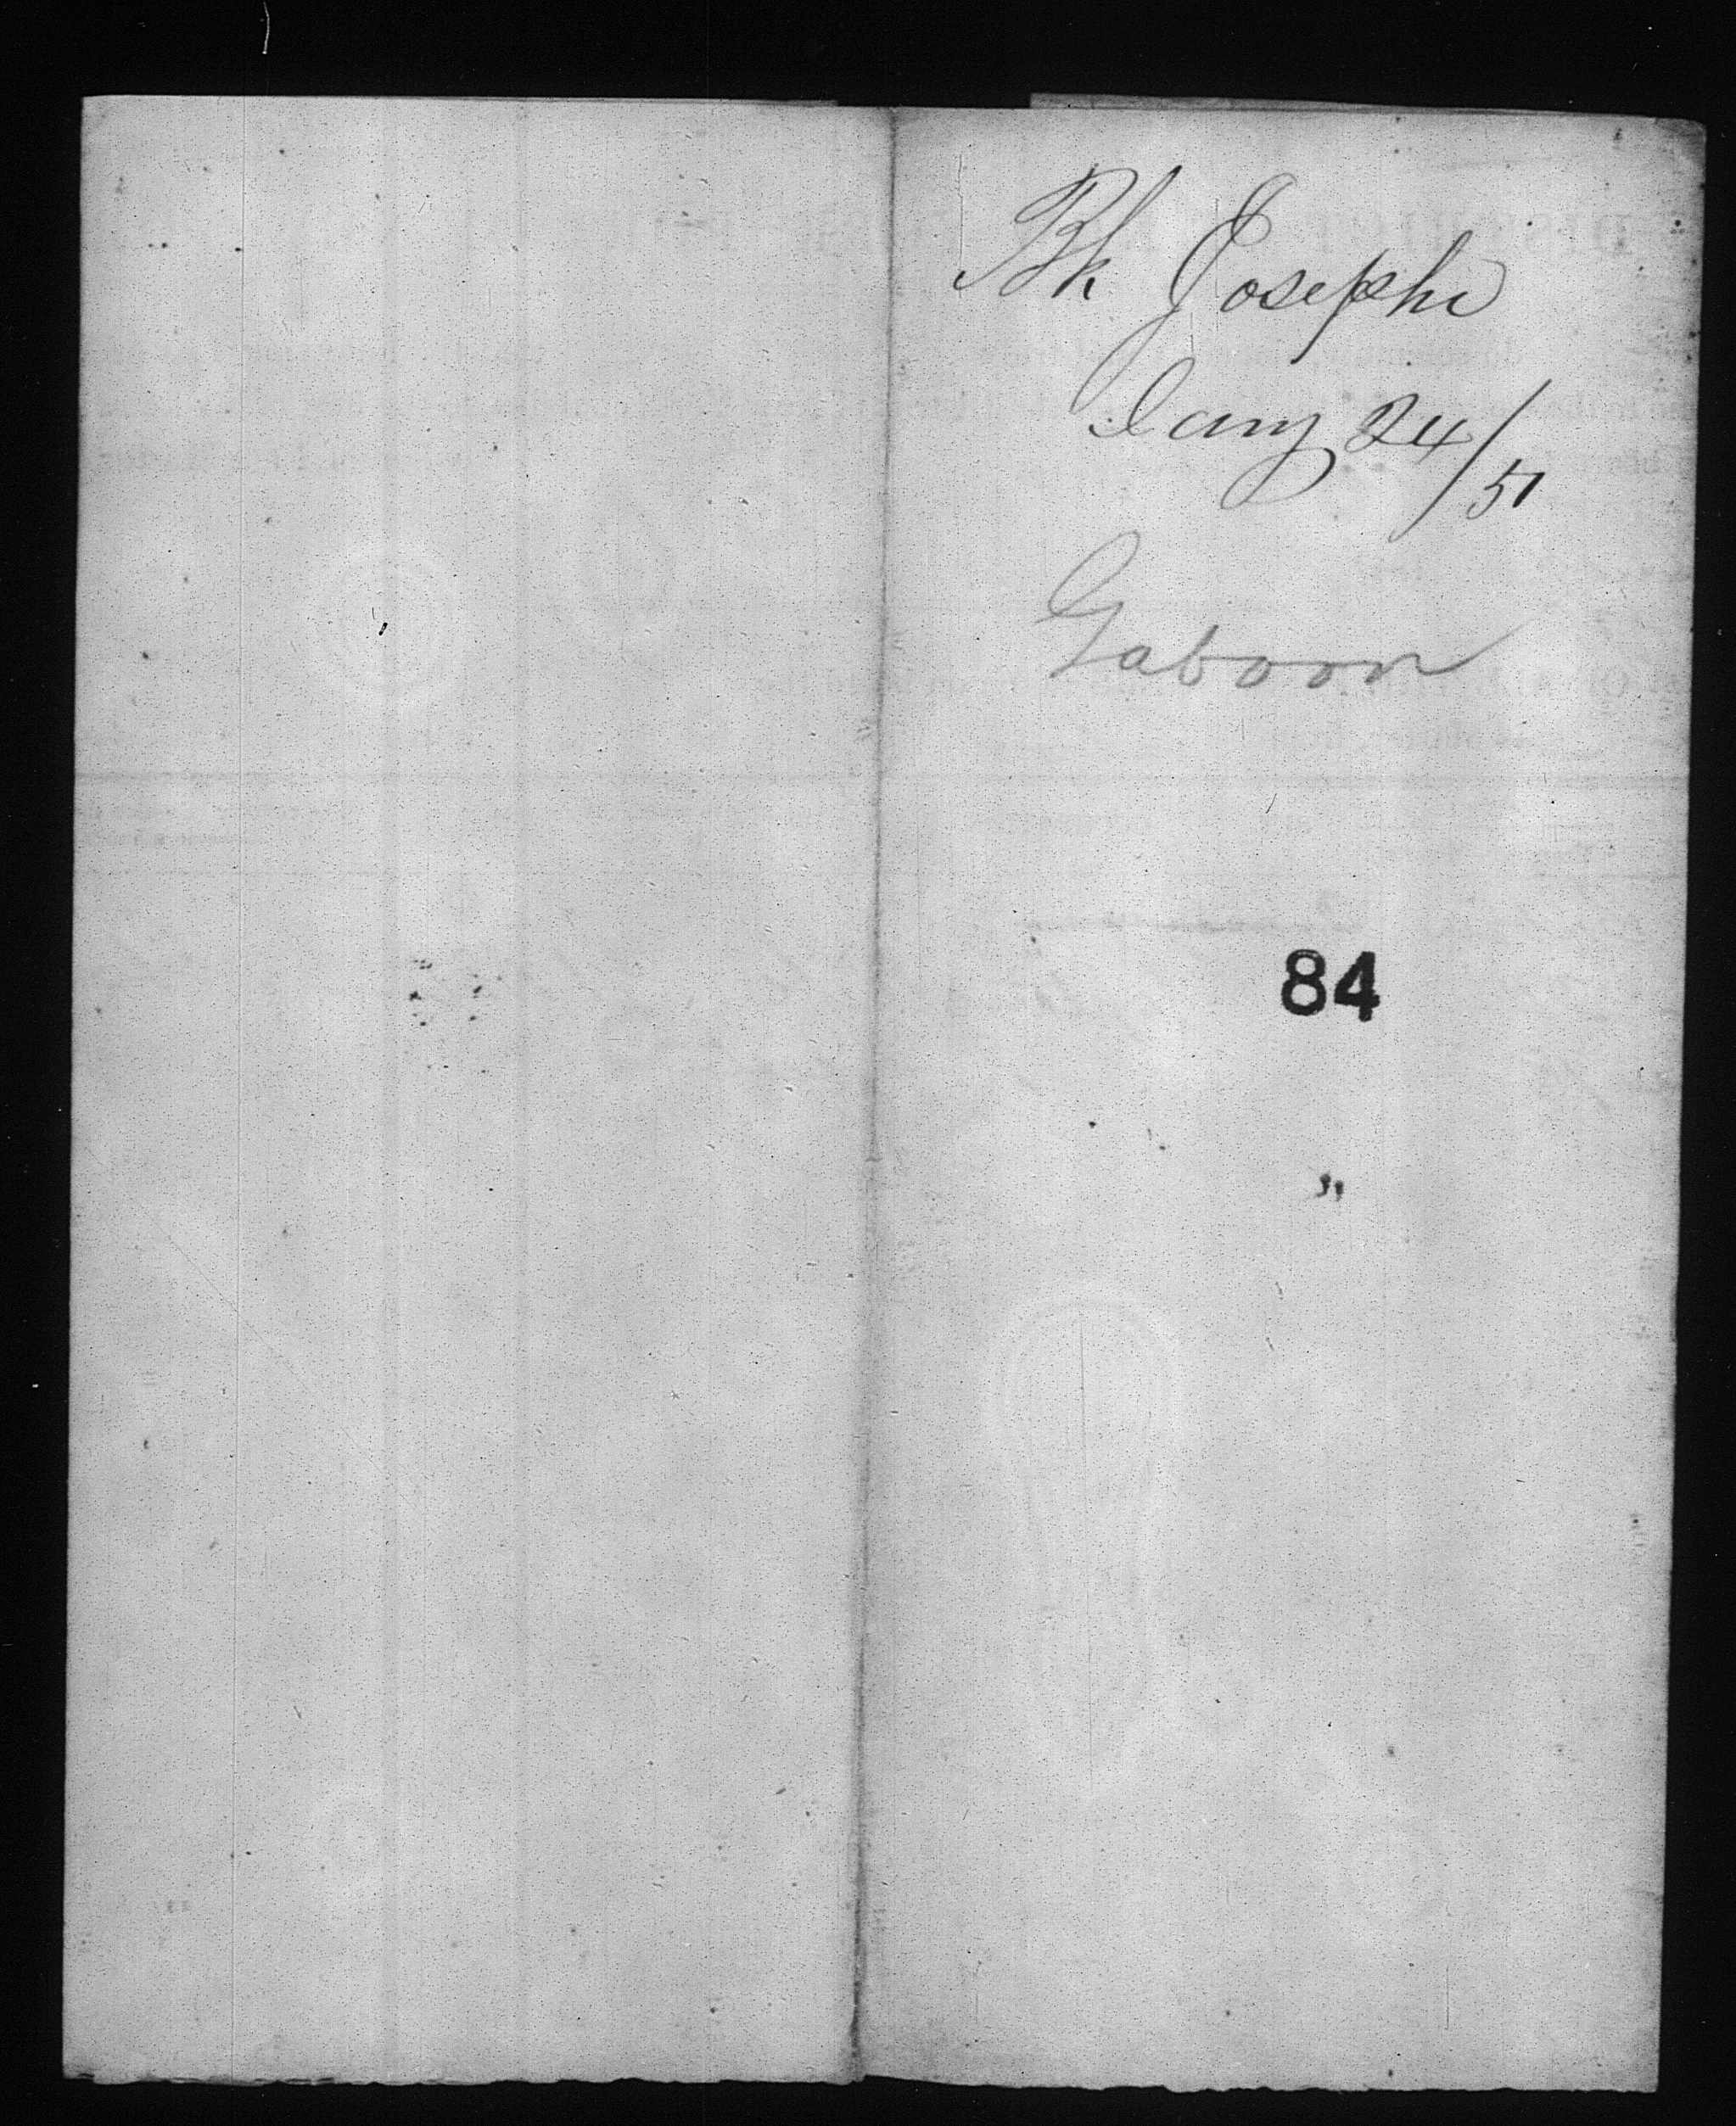 Bk Josephe
Jany 24/51
Gaboon
84